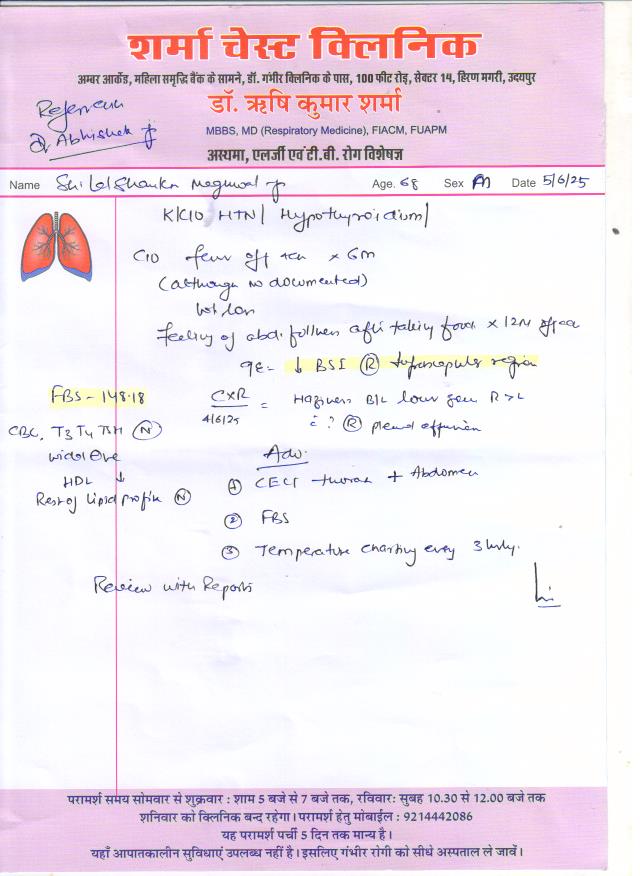 शर्मा चेस्ट क्लिनिक
अम्बर आर्केड, महिला समृद्धि बैंक के सामने, डॉ. गंभीर क्लिनिक के पास, 100 फीट रोड़, सेक्टर 14, हिरण मगरी, उदयपुर
डॉ. ऋषि कुमार शर्मा
MBBS, MD (Respiratory Medicine), FIACM, FUAPM
अस्थमा, एलर्जी एवं टी.बी. रोग विशेषज्ञ
Dr Abhishek ji
Name Shri Meghwal ji Age. 68 Sex M Date 5/6/25
K/C/O HTN / Hypothyroidism /
C/O fever off × 6m
(although no documented)
wt loss
Feeling of abd. fullness after taking food × 12M
↓ BSI Ⓡ Infrascapular region
FBS - 148.18
CXR 4/6/25 = Haziness B/L lower zone R > L
? Ⓡ pleural effusion
CBC, T3 T4 TSH Ⓝ
widal ⊖ve
HDL ↓
Rest of Lipid profile Ⓝ
Adv.
① CECT thorax + Abdomen
② FBS
③ Temperature charting every 3 hrly.
Review with Reports
परामर्श समय सोमवार से शुक्रवार : शाम 5 बजे से 7 बजे तक, रविवार: सुबह 10.30 से 12.00 बजे तक
शनिवार को क्लिनिक बन्द रहेगा। परामर्श हेतु मोबाईल : 9214442086
यह परामर्श पर्ची 5 दिन तक मान्य है।
यहाँ आपातकालीन सुविधाएं उपलब्ध नहीं है। इसलिए गंभीर रोगी को सीधे अस्पताल ले जावें।